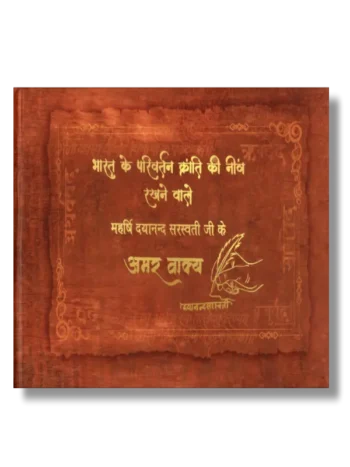 भारत के परिवर्तन क्रांति की नींव
रखने वाले
महर्षि दयानन्द सरस्वती जी के
अमर वाक्य